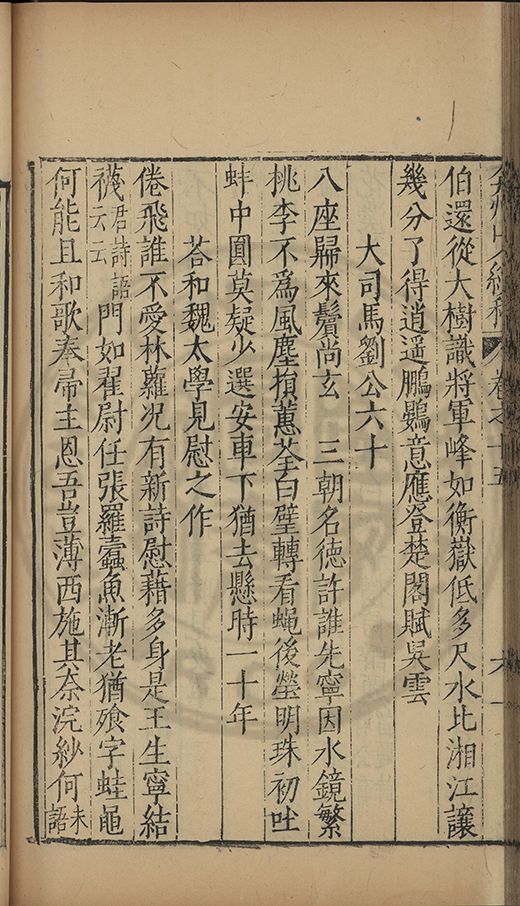 弇州山人續稿 卷之十五 六
伯還從大樹識將軍峰如衡嶽低多尺水比湘江讓
幾分了得逍遥鵬鷃意應登楚閣賦吳雲
大司馬劉公六十
八座歸來鬢尚玄 三朝名德許誰先寧因水鏡繁
桃李不爲風塵損蕙荃白璧轉看蠅後瑩明珠初吐
蚌中圓莫疑少選安車下猶去懸時一十年
荅和魏太學見慰之作
倦飛誰不愛林蘿况有新詩慰藉多身是王生寧結
襪君詩語云云門如翟尉任張羅蠹魚漸老猶飱字蛙黽
何能且和歌奉帚主恩吾豈薄西施其柰浣紗何末語